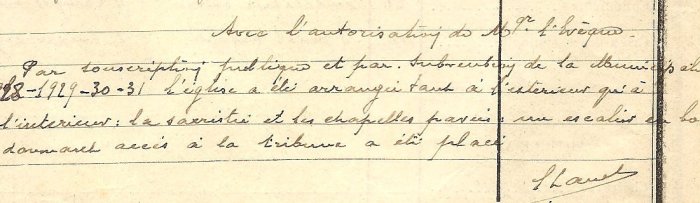 Avec l'autorisation de Mgr l'Evèque.
Par souscription publique et par subvention de la Municipal
28-1929-30-31 l'église a été arrangée tant à l'exterieur qu'à
l'interieur: la sacristie et les chapelles pavées: un escalier en bo
donnant accès à la tribune a été placé